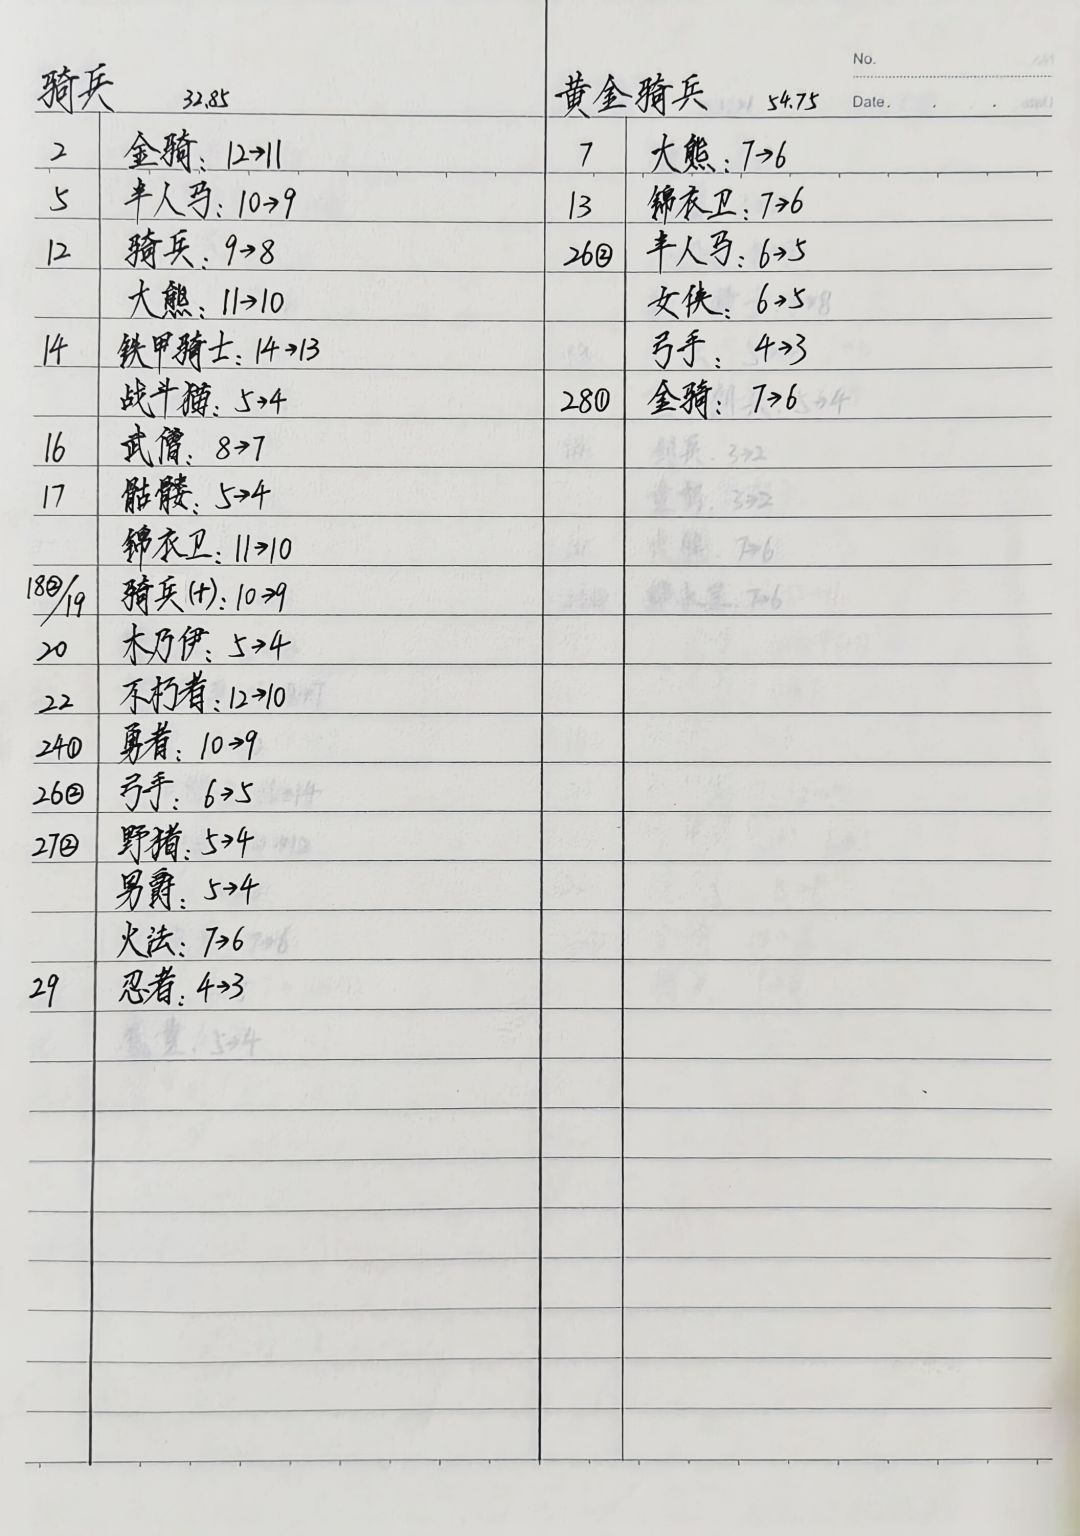 No.
Date.
骑兵 32.85
2 金骑：12→11
5 半人马：10→9
12 骑兵：9→8
大熊：11→10
14 铁甲骑士：14→13
战斗猫：5→4
16 武僧：8→7
17 骷髅：5→4
锦衣卫：11→10
18②/19 骑兵(+)：10→9
20 木乃伊：5→4
22 不朽者：12→10
24① 勇者：10→9
26② 弓手：6→5
27② 野猪：5→4
男爵：5→4
火法：7→6
29 忍者：4→3
黄金骑兵 54.75
7 大熊：7→6
13 锦衣卫：7→6
26② 半人马：6→5
女侠：6→5
弓手：4→3
28① 金骑：7→6